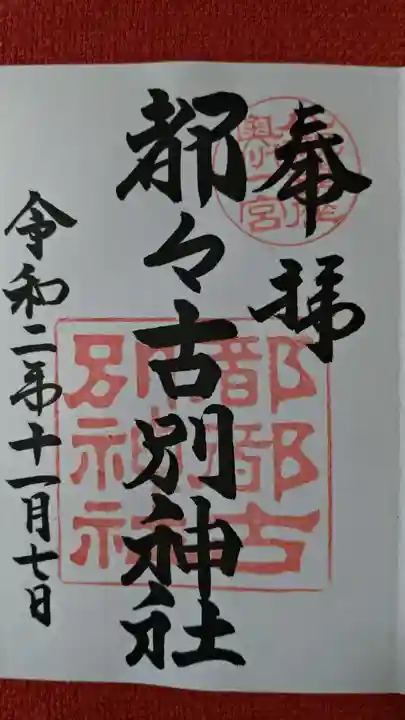 奉拝
都々古別神社
令和二年十一月七日
都都古
別神社
奥州一宮